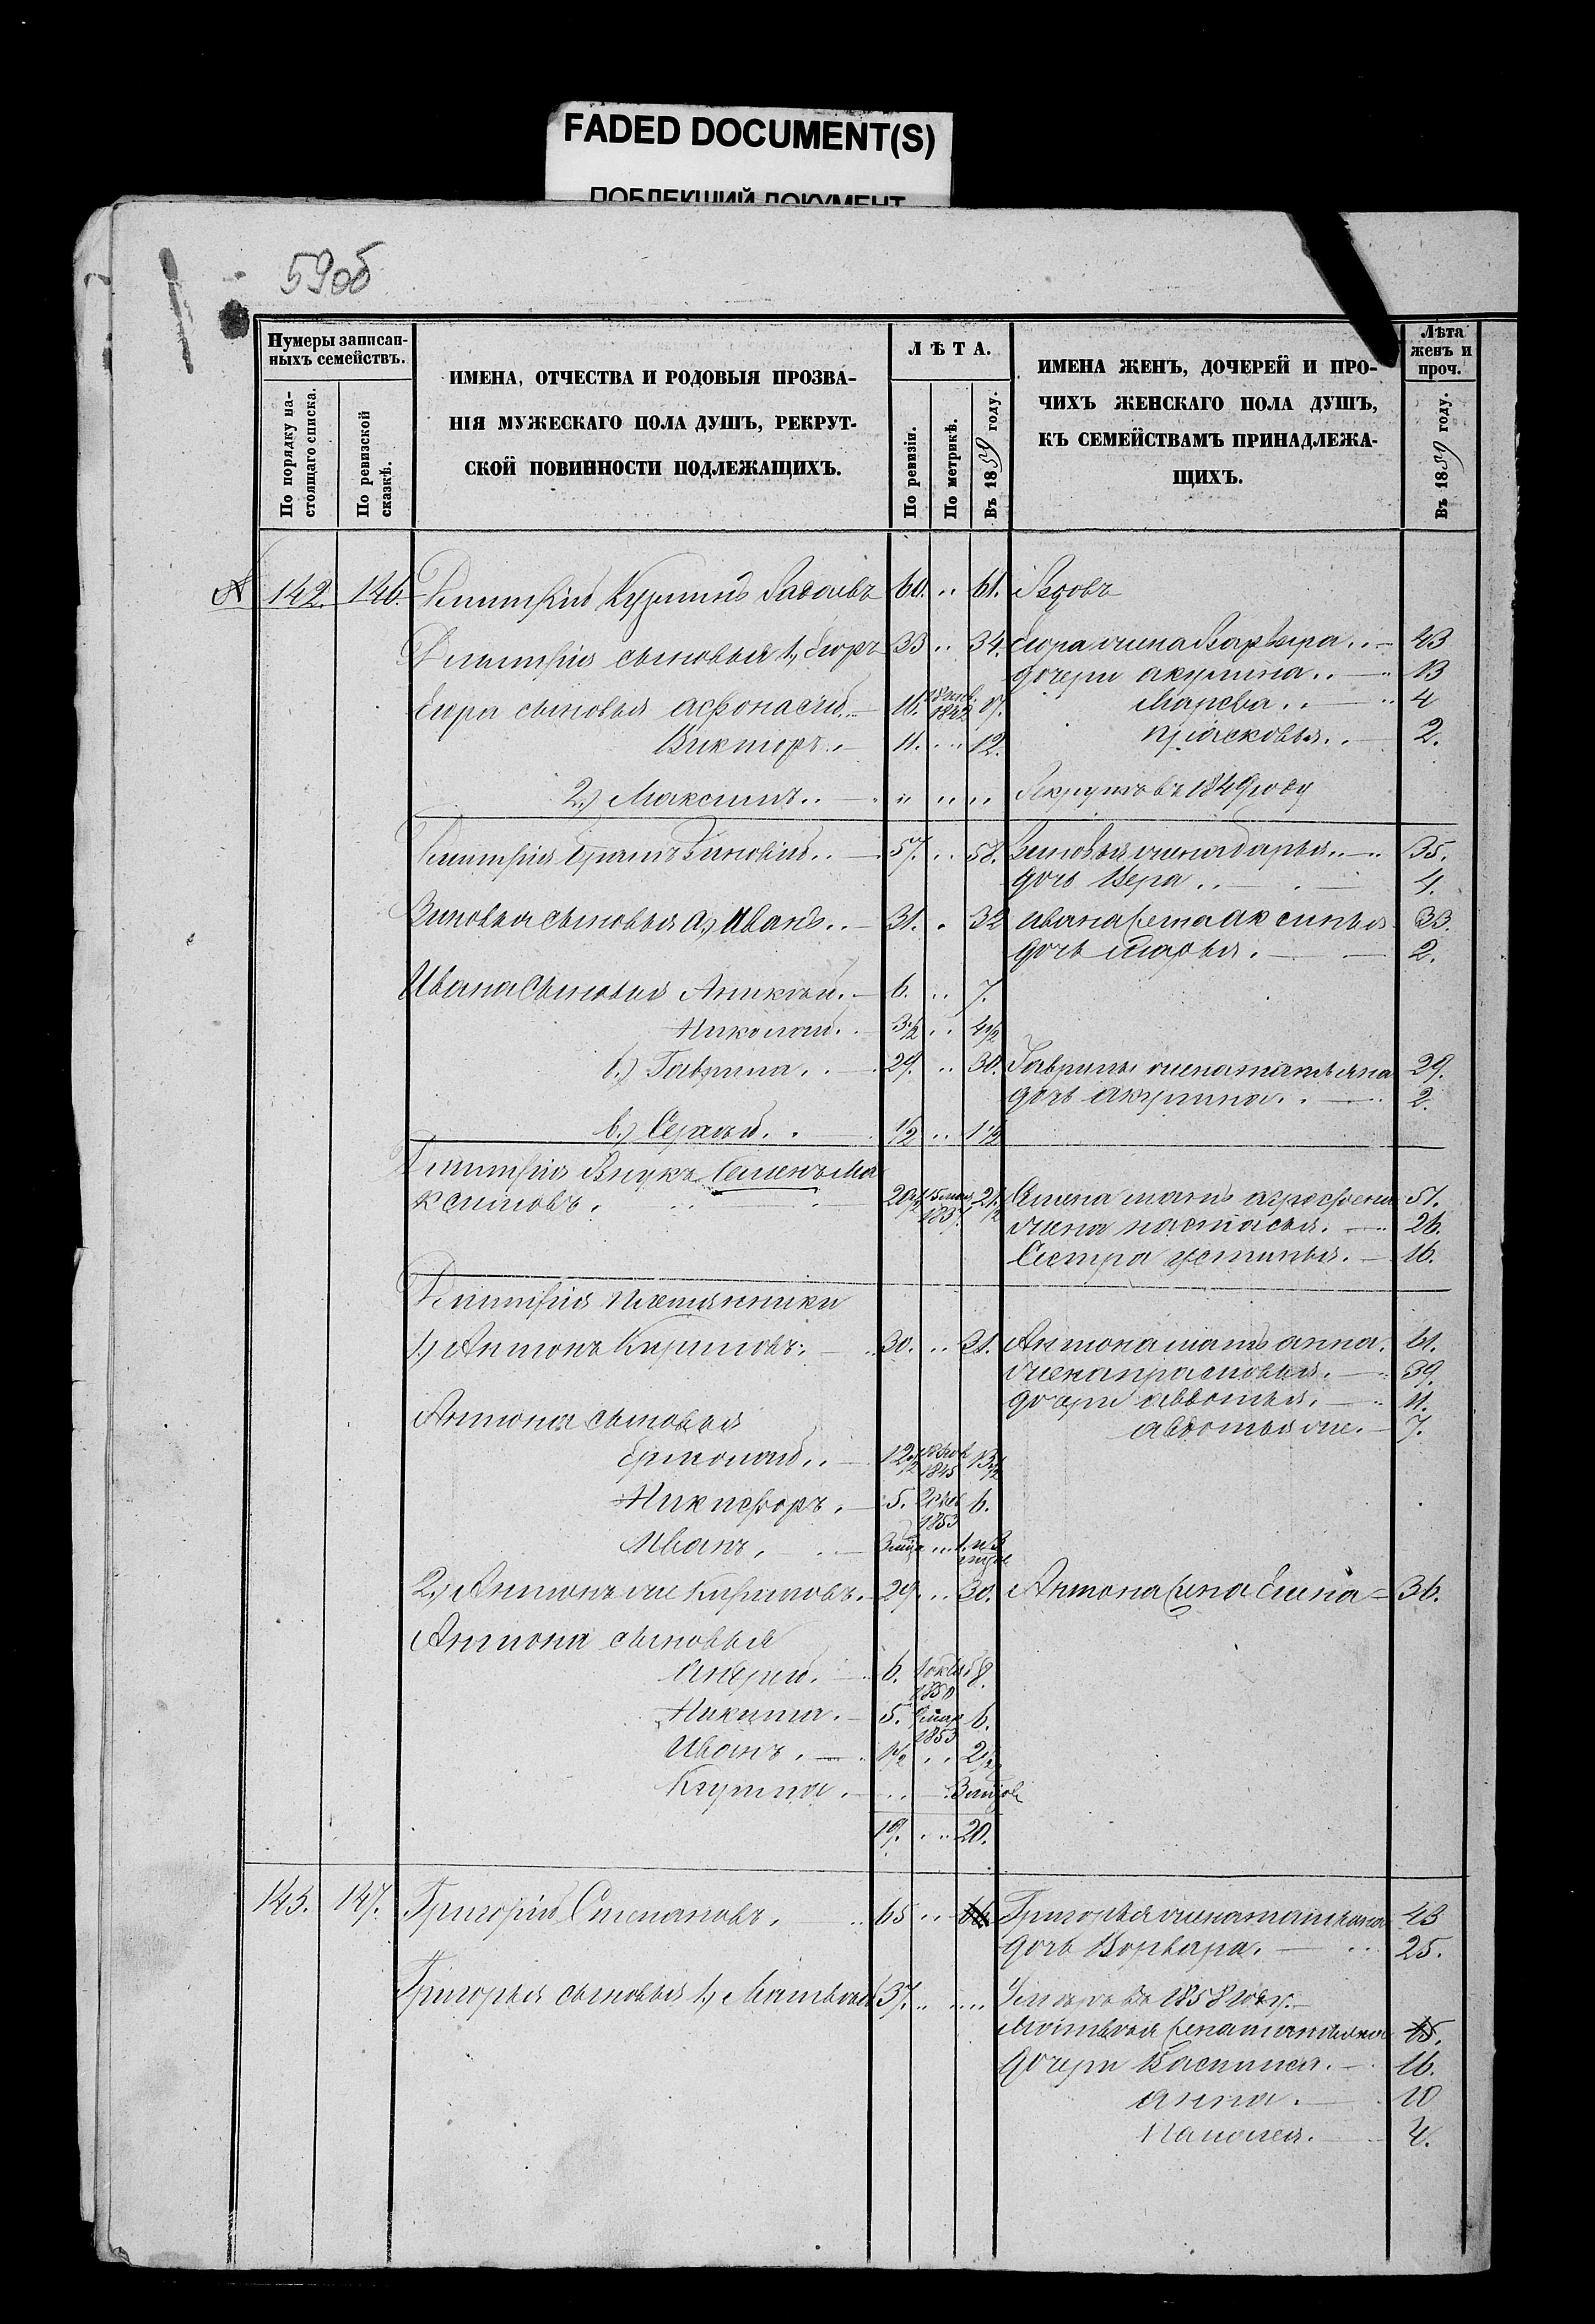 FADED DOCUMENT(S)
ПОБЛЕКШИЙ ДОКУМЕНТ
59об
Нумеры записан-
ныхъ семействъ.
По порядку на-
стоящаго списка.
По ревизской
сказкѣ.
ИМЕНА, ОТЧЕСТВА И РОДОВЫЯ ПРОЗВА-
НІЯ МУЖЕСКАГО ПОЛА ДУШЪ, РЕКРУТ-
СКОЙ ПОВИННОСТИ ПОДЛЕЖАЩИХЪ.
ЛѢТА.
По ревизіи.
По метрикѣ.
Въ 1859 году.
ИМЕНА ЖЕНЪ, ДОЧЕРЕЙ И ПРО-
ЧИХЪ ЖЕНСКАГО ПОЛА ДУШЪ,
КЪ СЕМЕЙСТВАМЪ ПРИНАДЛЕЖА-
ЩИХЪ.
Лѣта
женъ и
проч.
Въ 1859 году.
142. 146. Дмитрій Кузминъ 60. .. 61. Вдовъ
Дмитрія сыновья 1, Егоръ 33 .. 34. Егора жена Варвара .. 43
дочери акулина .. 13
Егора сыновья афонасій .. 16. 1842 17. Марѳа .. 4
Викторъ .. 11. .. 12. прасковья .. 2.
2.) Максимъ .. " .. .. Рекрутъ въ 1849 году
Дмитрія братъ Зиновій .. 57. .. 58. Зиновья жена дарья .. 35.
дочь Вера .. 4.
Зиновья сыновья а, Иванъ .. 31. . 32 ивана жена аксинья 33.
дочь марья . 2.
Ивана Сыновья 6. .. 7.
Николай . 3 1/2 .. 4 1/2
б.) Гаврила .. 29. .. 30. Гаврилы жена татьяна 29.
дочь акулина .. 2.
в.) Сергѣй . . 1/2 .. 1 1/2
Дмитрія Внукъ Семенъ Ма
ксимовъ . 20 1/2 15 мая 1837. 21 1/2 Семена мать агрофена 51.
жена настасья . 26.
Сестра устинья . 16.
Дмитрія племянники
1.) Антонъ Кириловъ . 30. .. 31. Антона мать анна . 61.
жена прасковья . 39.
дочери авдотья . 11.
Антона сыновья авдотья же . 7.
Ермолай .. 12 1/2 1845 13 1/2
Никифоръ . 5. 1853 6.
Иванъ .
2.) Антонъ же Кириловъ . 29 .. 30. Антона жена Елена 36.
Антона сыновья
Андрей . 6. 1850 8.
Никита . 5. 1853 6.
Иванъ . 1 1/2 .. 2 1/2
Кузма .
19. .. 20.
143. 147. Григорій Степановъ . 65 .. 66 Григорья жена татьяна 43
дочь Варвара . 25.
Григорья сыновья 1, Матвѣй 37. .. .. Умеръ въ 1858 году .
Матвѣя жена татьяна 45.
дочери Василиса . 16.
анна . 10
4.